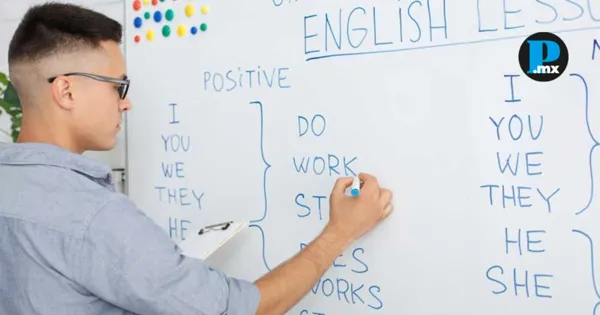 ENGLISH
P.mx
POSITIVE
I
YOU
WE
THEY
HE
DO
WORK
WORKS
I
YOU
WE
THEY
HE
SHE